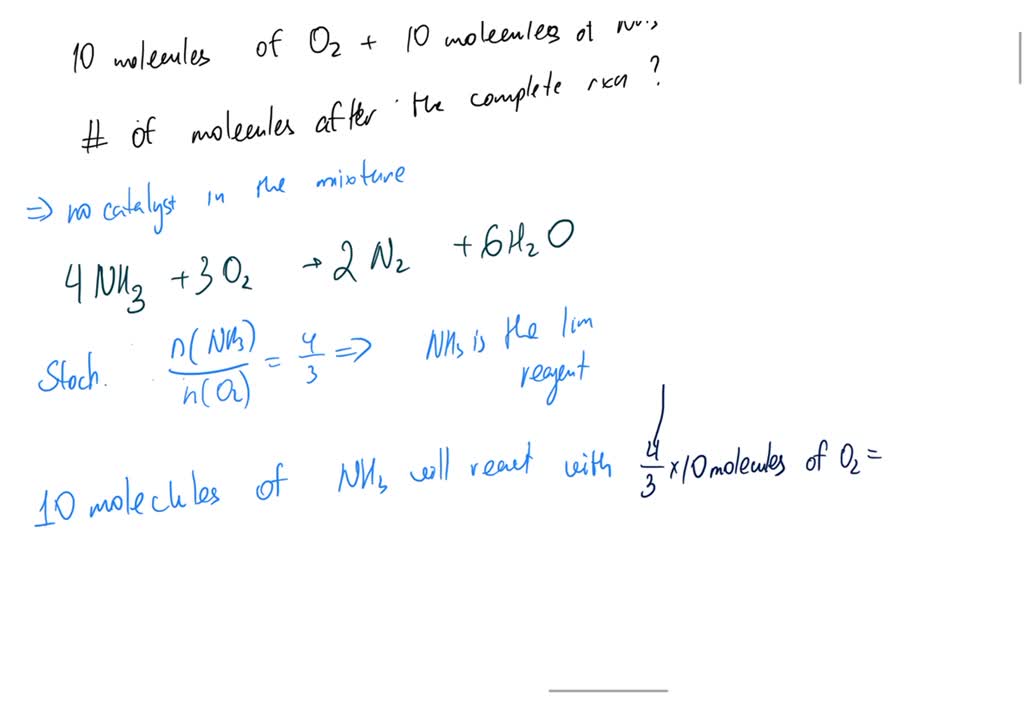 10 molecules of O2 + 10 molecules of NH3
# of molecules after the complete rxn ?
⇒ no catalyst in the mixture
4 NH3 + 3 O2 → 2 N2 + 6 H2O
Stoch. n(NH3)/n(O2) = 4/3 ⇒ NH3 is the lim reagent
10 molecules of NH3 will react with 4/3 × 10 molecules of O2 =